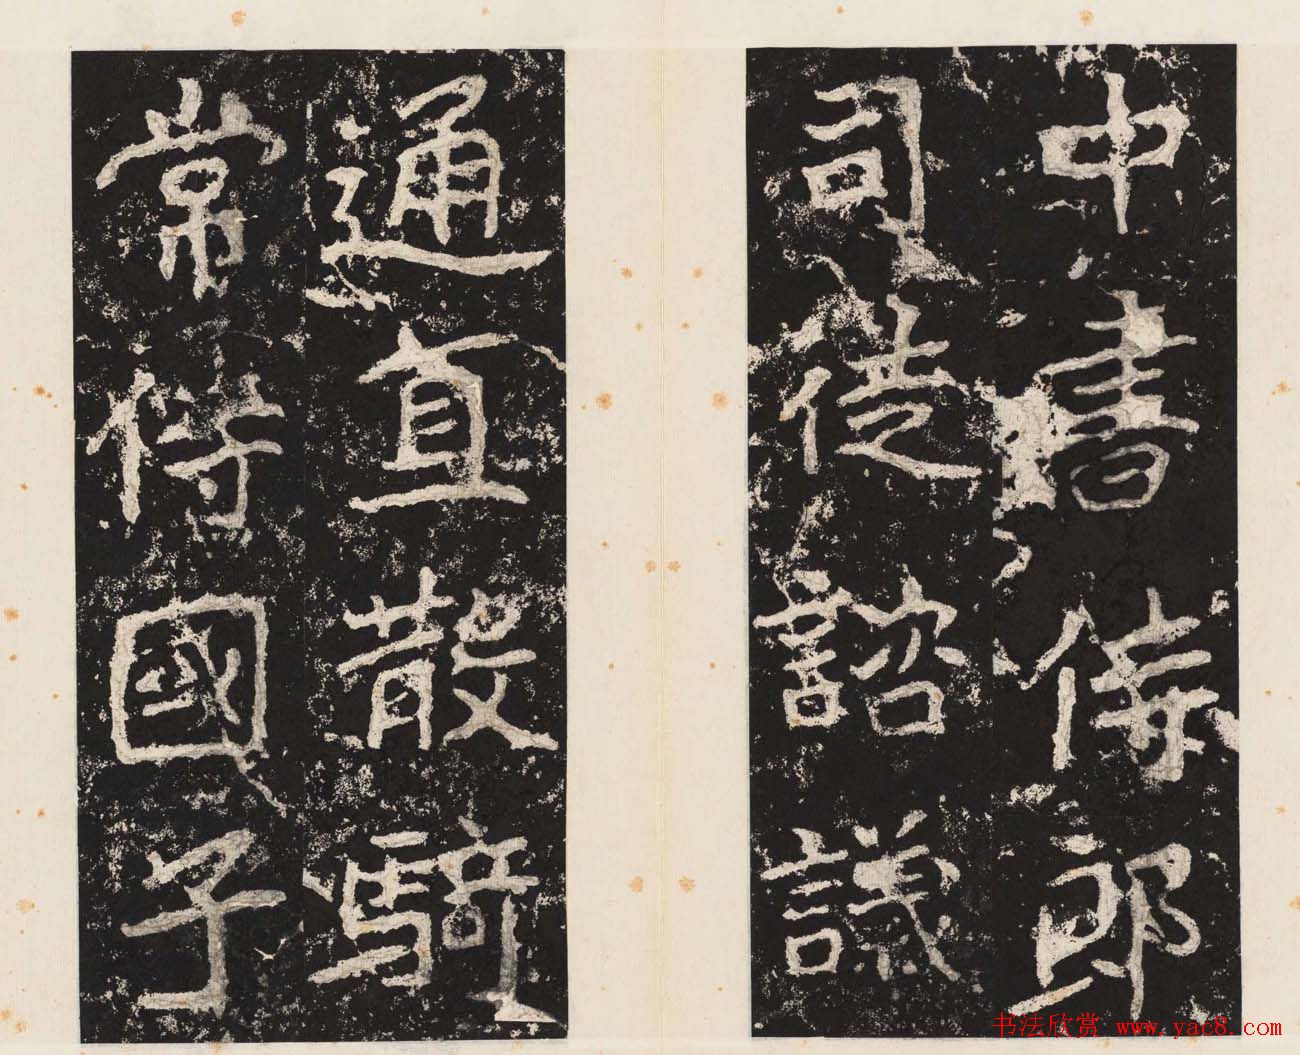 中書侍郎
司徒諮議
通直散騎
常侍國子
书法欣赏 www.yac8.com